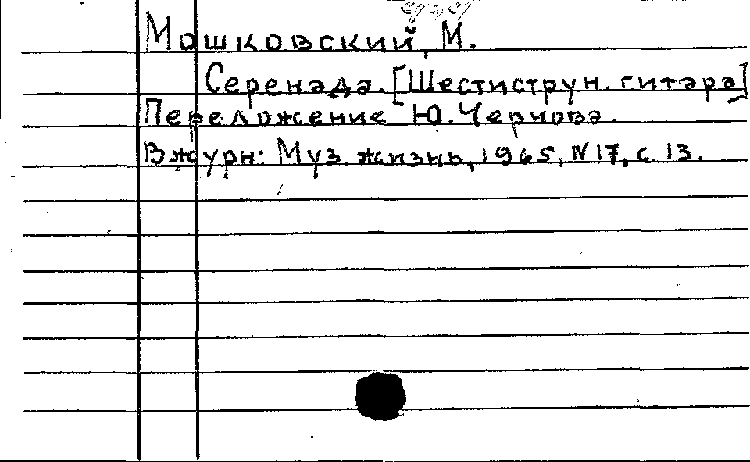 Мошковский, М.
Серенада. [Шестиструн. гитара]
Переложение Ю. Чернова.
В журн: Муз. жизнь, 1965, N 17, с. 13.